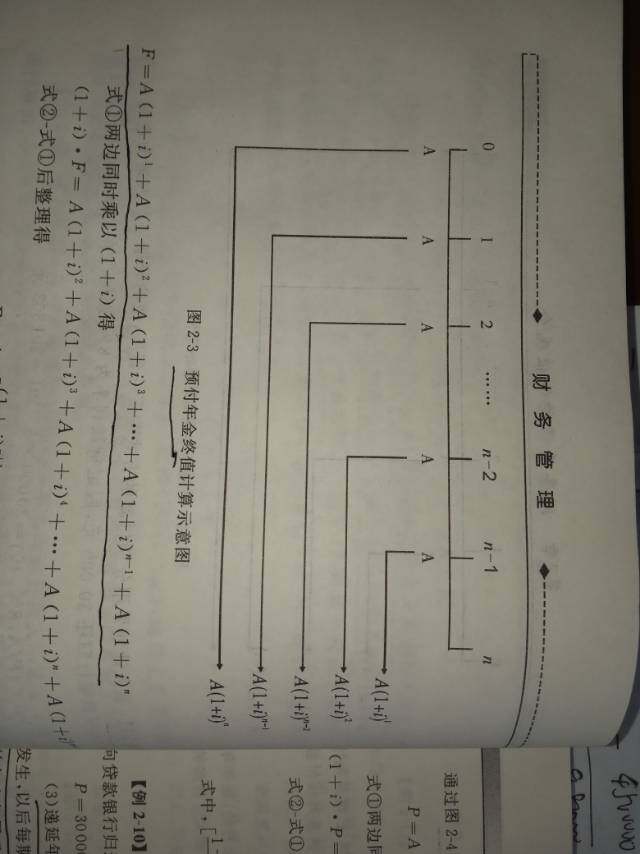 财务管理
0 1 2 …… n-2 n-1 n
A A A A A
A(1+i)¹
A(1+i)²
A(1+i)ⁿ⁻²
A(1+i)ⁿ⁻¹
A(1+i)ⁿ
图 2-3 预付年金终值计算示意图
F=A(1+i)¹+A(1+i)²+A(1+i)³+…+A(1+i)ⁿ⁻¹+A(1+i)ⁿ
式①两边同时乘以(1+i)得
(1+i)•F=A(1+i)²+A(1+i)³+A(1+i)⁴+…+A(1+i)ⁿ+A(1+i)
式②-式①后整理得
通过图 2-4
P=A
式①两边同
(1+i)•P=
式②-式①
式中,[
【例 2-10】
向贷款银行归
P=30000
(3)递延年
发生,以后每期